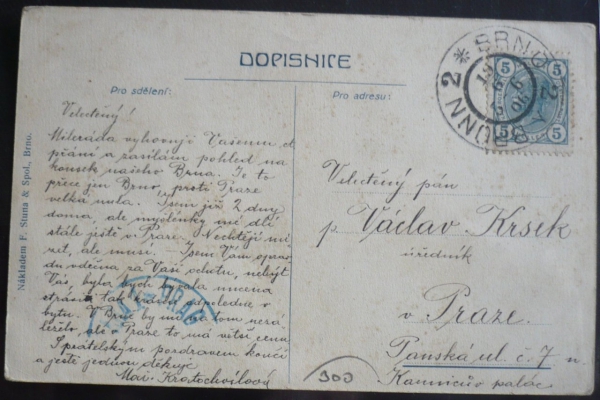 DOPISNICE
Pro sdělení:
Pro adresu:
5 5
5 5
BRNO 2
BRÜNN 2
Nákladem F. Stuna & Spol., Brno.
Velectěný!
Mileráda vyhovuji Vašemu
přání a zasílám pohled na
kousek našeho Brna. Je to
přece jen Brno, proti Praze
velká nula. Jsem již 2 dny
doma, ale myšlénky mé dlí
stále ještě v Praze. Nechtějí
ale musí. Jsem Vám
vděčna za Vaši ochotu, nebýt
Vás, byla bych bývala nucena
strávit tak krásné odpoledne v
bytu. V Brně by mi na tom
ale v Praze to má větší cenu
S přátelským pozdravem končí
a ještě jednou děkuje
Mař. Kratochvílová
Velectěný pán
p. Václav Krsek
úředník
v Praze.
Panská ul. č. 7 n.
Kaunicův palác
PRAG
303